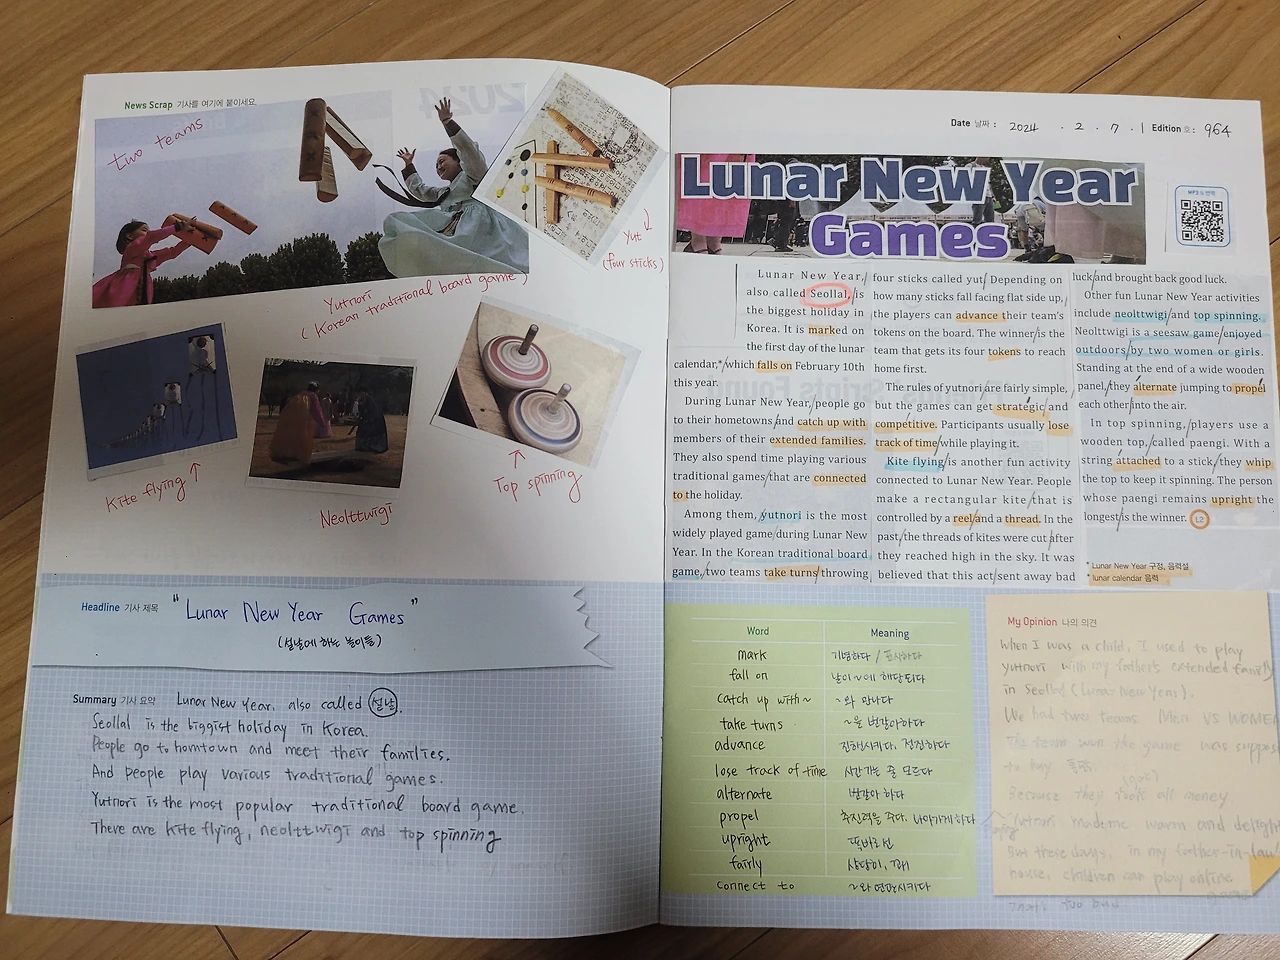 News Scrap 기사를 여기에 붙이세요.
two teams
Yut
(four sticks)
Yutnori
(Korean traditional board game)
Kite flying
Neolttwigi
Top spinning
Headline 기사 제목
"Lunar New Year Games"
(설날에 하는 놀이들)
Summary 기사 요약 Lunar New Year, also called 설날.
Seollal is the biggest holiday in Korea.
People go to homtown and meet their families.
And people play various traditional games.
Yutnori is the most popular traditional board game.
There are kite flying, neolttwigi and top spinning
Date 날짜 : 2024 . 2 . 7 . | Edition 호 : 964
Lunar New Year
Games
MP3 & 번역
Lunar New Year,
also called Seollal, is
the biggest holiday in
Korea. It is marked on
the first day of the lunar
calendar,* which falls on February 10th
this year.
During Lunar New Year, people go
to their hometowns and catch up with
members of their extended families.
They also spend time playing various
traditional games that are connected
to the holiday.
Among them, yutnori is the most
widely played game during Lunar New
Year. In the Korean traditional board
game, two teams take turns throwing
four sticks called yut. Depending on
how many sticks fall facing flat side up,
the players can advance their team's
tokens on the board. The winner is the
team that gets its four tokens to reach
home first.
The rules of yutnori are fairly simple,
but the games can get strategic and
competitive. Participants usually lose
track of time while playing it.
Kite flying is another fun activity
connected to Lunar New Year. People
make a rectangular kite that is
controlled by a reel and a thread. In the
past, the threads of kites were cut after
they reached high in the sky. It was
believed that this act sent away bad
luck and brought back good luck.
Other fun Lunar New Year activities
include neolttwigi and top spinning.
Neolttwigi is a seesaw game enjoyed
outdoors by two women or girls.
Standing at the end of a wide wooden
panel, they alternate jumping to propel
each other into the air.
In top spinning, players use a
wooden top, called paengi. With a
string attached to a stick, they whip
the top to keep it spinning. The person
whose paengi remains upright the
longest is the winner. L2
* Lunar New Year 구정, 음력설
* lunar calendar 음력
Word Meaning
mark 기념하다 / 표시하다
fall on 날이 ~에 해당되다
catch up with~ ~와 만나다
take turns ~을 번갈아하다
advance 진행시키다, 전진하다
lose track of time 시간 가는 줄 모르다
alternate 번갈아 하다
propel 추진력을 주다, 나아가게 하다
upright 똑바로 선
fairly 상당히, 꽤
connect to ~와 연관시키다
My Opinion 나의 의견
When I was a child, I used to play
yutnori with my father's extended family
in Seollal (Lunar New Year).
We had two teams Men VS WOMEN
The team won the game was
to buy
Because they took all money
Yutnori made me warm and delight
But these days, in my father-in-law
house, children can play online
too bad